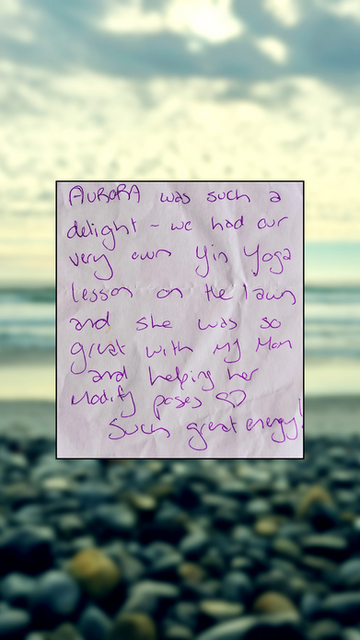 AURORA was such a
delight - we had our
very own Yin Yoga
lesson on the lawn
and she was so
great with My Mom
and helping her
Modify poses ♡
Such great energy!